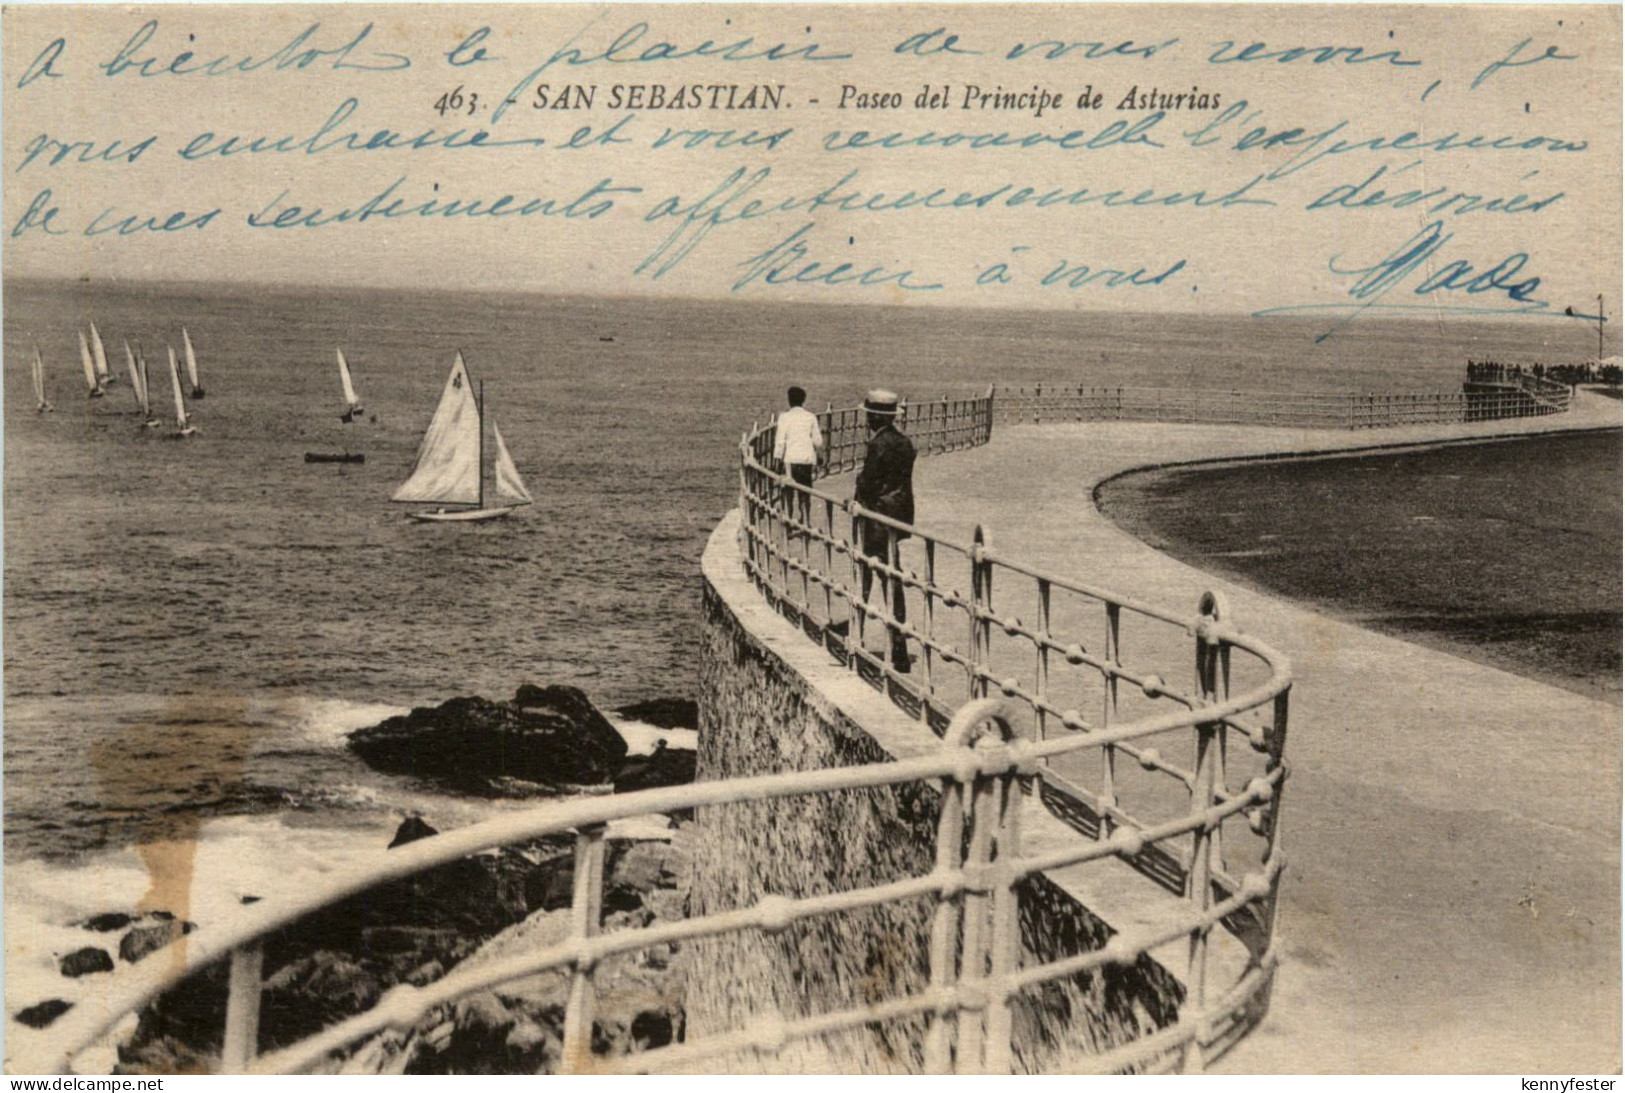 A bientôt le plaisir de vous revoir, je
463. - SAN SEBASTIAN. - Paseo del Principe de Asturias
vous embrasse et vous renouvelle l'expression
de mes sentiments affectueusement dévoués
Bien à vous. Made
delcampe.net
kennyfester